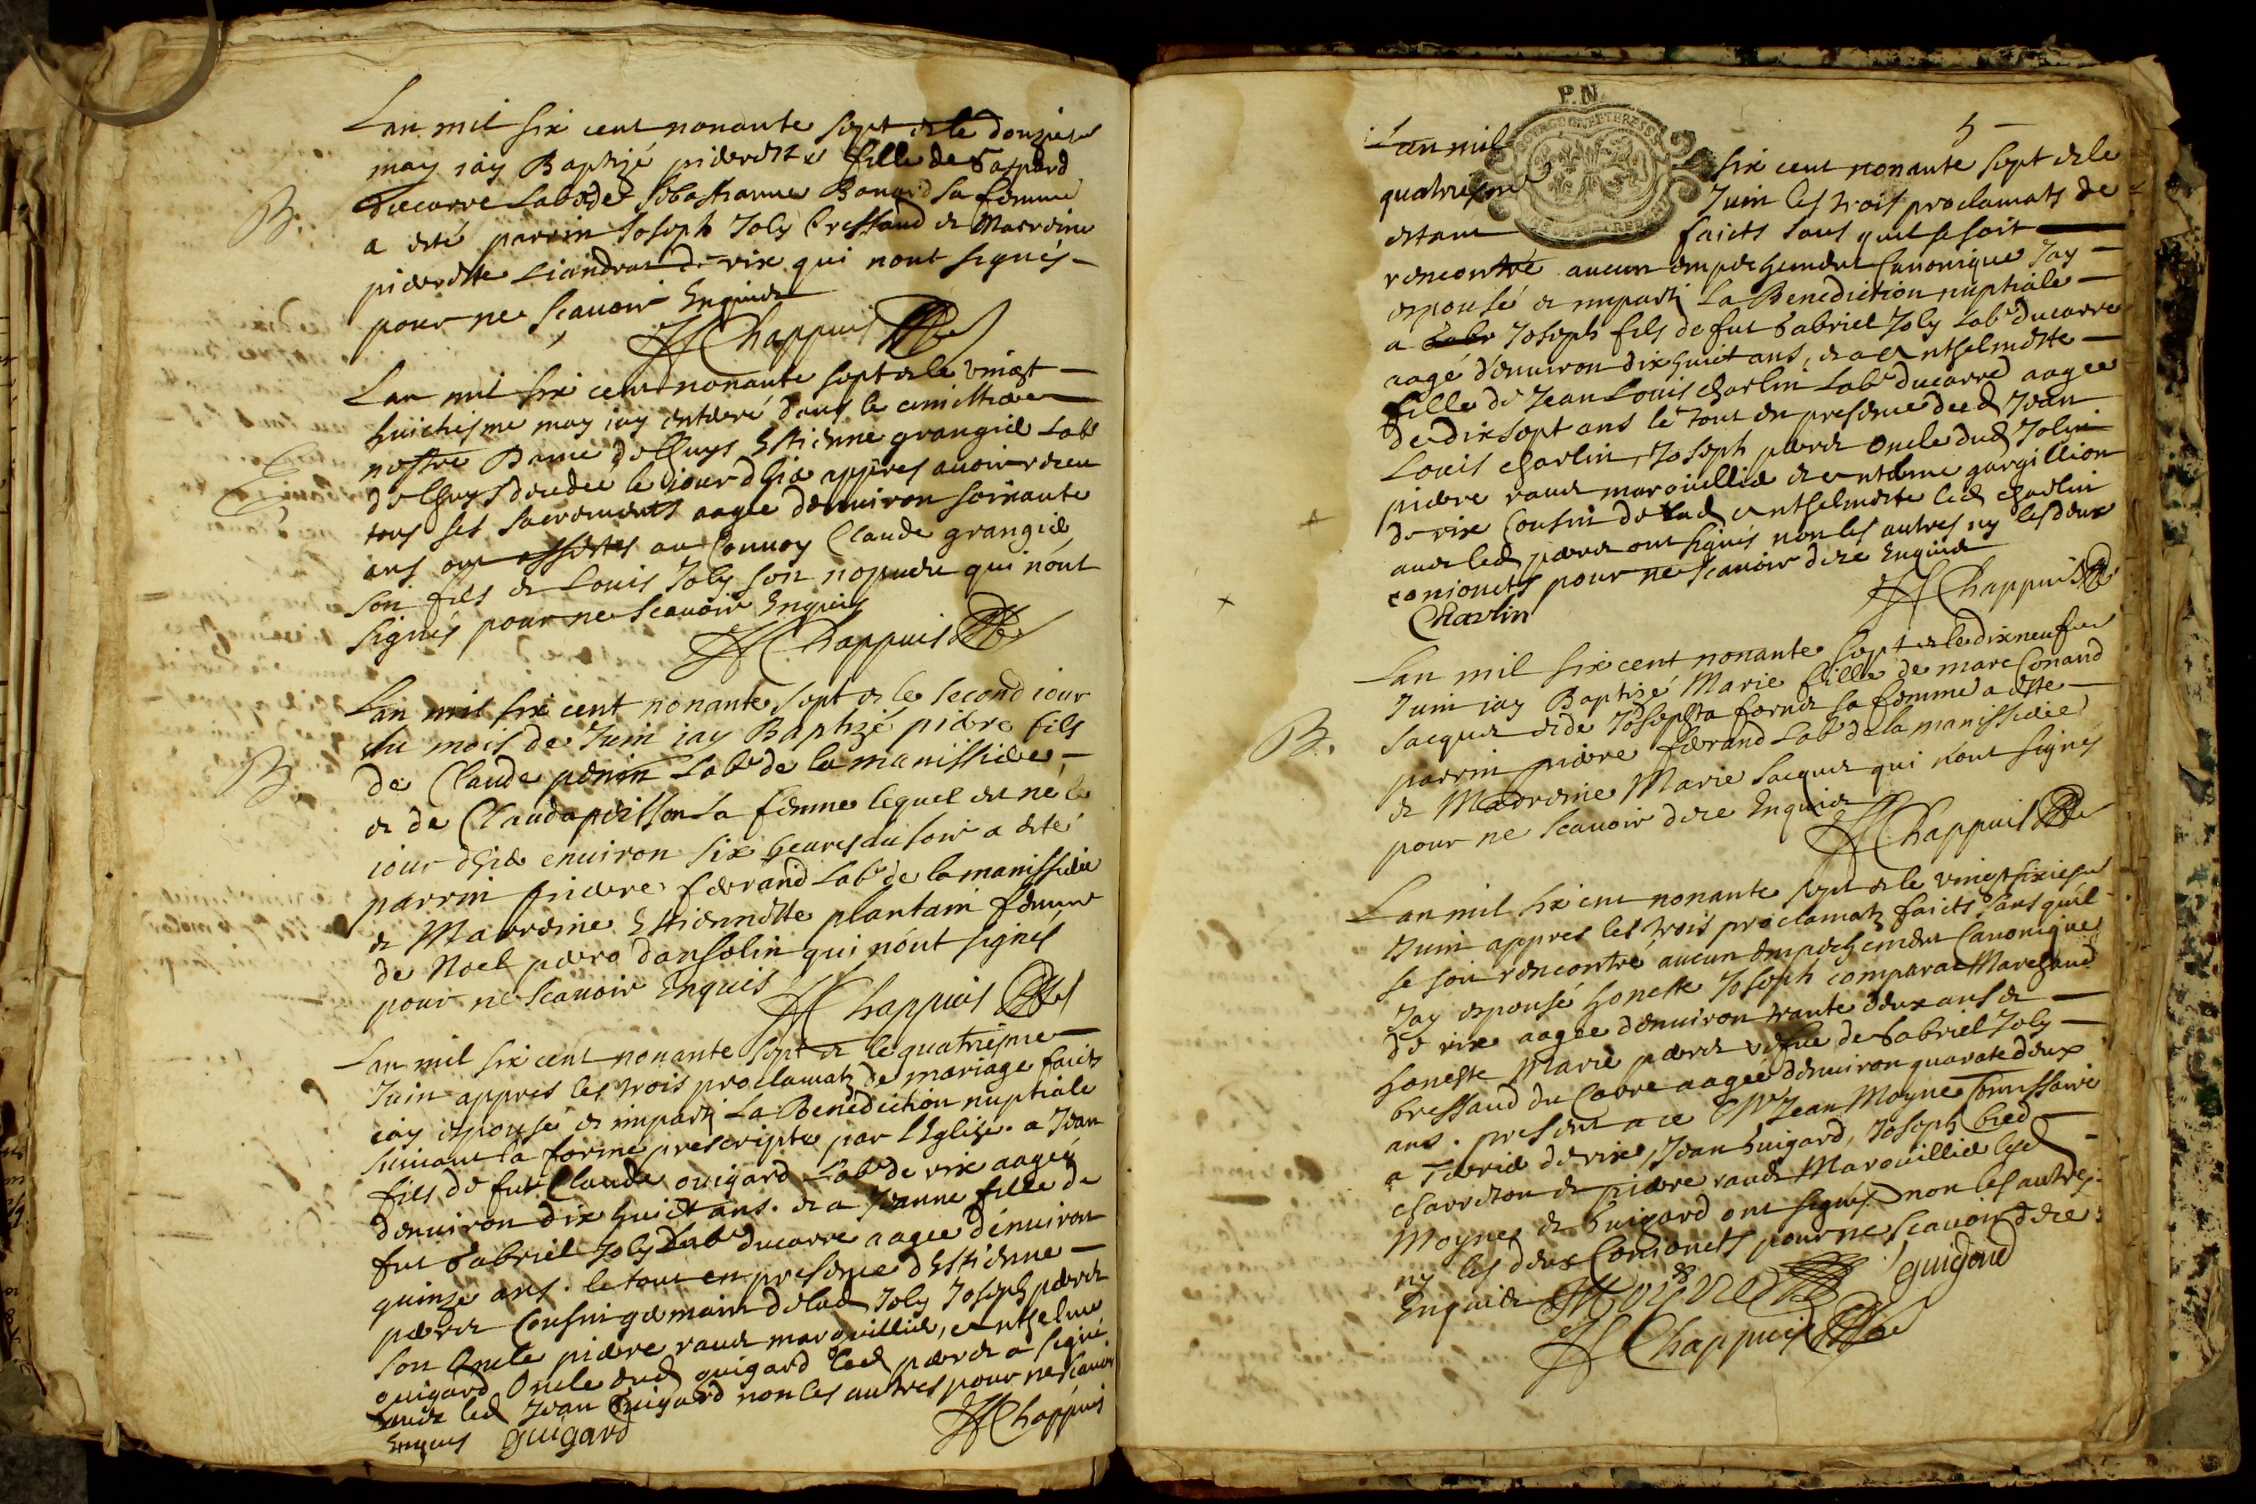 Lan mil six cent nonante sept & le douzieme
may iay Baptizé pierrette fille de Gaspard
Ducarre Lab & de Sebastianne Bonard sa femme
B.
a esté parrin Joseph Joly bressand & Marreine
pierrette Liandrat de rix qui nont signés
pour ne scauoir Enquis
Chappuis
Lan mil six cent nonante sept & le vingt
huictiesme may iay enterré dans le cimettiere
nostre Dame de lhuys Estienne grangié Labr
E
de lhuys decedée le iour dhier appres auoir receu
tous ses sacrements aagee denuiron soixante
ans ont assistés au Conuoy Claude grangié
son fils & Louis Joly son nopueu qui nont
signés pour ne scauoir Enquis
Chappuis
Lan mil six cent nonante sept & le second iour
du mois de Juin iay Baptizé pierre fils
B.
de Claude perrin Labr de la manissiere
& de Clauda poisson sa femme lequel est né le
iour dhier enuiron six heures du soir a esté
parrin pierre ferrand Labr de la manissiere
& Marreine Estiennette plantain femme
de Noel pierre dansolin qui nont signés
pour ne scauoir Enquis
Chappuis
Lan mil six cent nonante sept & le quatriesme
Juin appres les trois proclamats de mariage faicts
iay espousé & imparti La Benediction nuptiale
suiuant la forme prescripte par l'Eglize a Jean
fils de fut Claude guigard Labr de rix aagéz
denuiron dix huict ans. & a Jeanne fille de
fut Gabriel Joly Labr ducarre aagee denuiron
quinze ans. le tout en presence dEstienne
pierre Cousin germain de lad Joly Joseph pierre
son Oncle pierre raud marouillier, anthelme
guigard Oncle dud guigard led pierre a signé
auec led Jean Guigard non les autres pour ne scauoir
Enquis guigard
Chappuis
P.N.
5
Lan mil six cent nonante sept & le
quatriesme Juin les trois proclamats de
estant faicts sans quil se soit
rencontré aucun empechement Canonique Jay
espousé & imparti La Benediction nuptiale
a Joseph fils de fut Gabriel Joly Labr ducarre
aagé denuiron dix huict ans, & a anthelmette
fille de Jean Louis charlin Labr ducarre aagee
de dix sept ans le tout en presence dud Jean
Louis charlin, Joseph pierre Oncle dud Jolin
pierre raud marouillier & anthelme gargillion
de rix Cousin de lad anthelmette led charlin
auec led pierre ont signés non les autres ny les deux
conioincts pour ne scauoir dere Enquis
Chappuis
Charlin
Lan mil six cent nonante sept & le dix neufue
Juin iay Baptizé Marie fille de marc Conand
B.
Jacquer & de Josephta fornier sa femme a esté
parrin pierre ferrand Labr de la manissiere
& Marreine Marie Jacquer qui nont signés
pour ne scauoir dere Enquis
Chappuis
Lan mil six cent nonante sept & le vingt sixiesme
Juin appres les trois proclamats faicts sans quil
se soit rencontré aucun empechement Canonique
Jay espousé honeste Joseph comparat Marchand
de rix aagee denuiron trante deux ans &
honeste Marie pierre vefue de Gabriel Joly
bressand du Carre aagee denuiron quarate deux
ans. present a ce Mr Jean Moyne Comissaire
a Terrier de rix, Jean Guigard, Joseph bied
charreton & pierre raud Marouillier lesd
Moynes & Guigard ont signés non les autres
ny les deux Conioincts pour ne scauoir dere
Enquis Moyne guigard
Chappuis